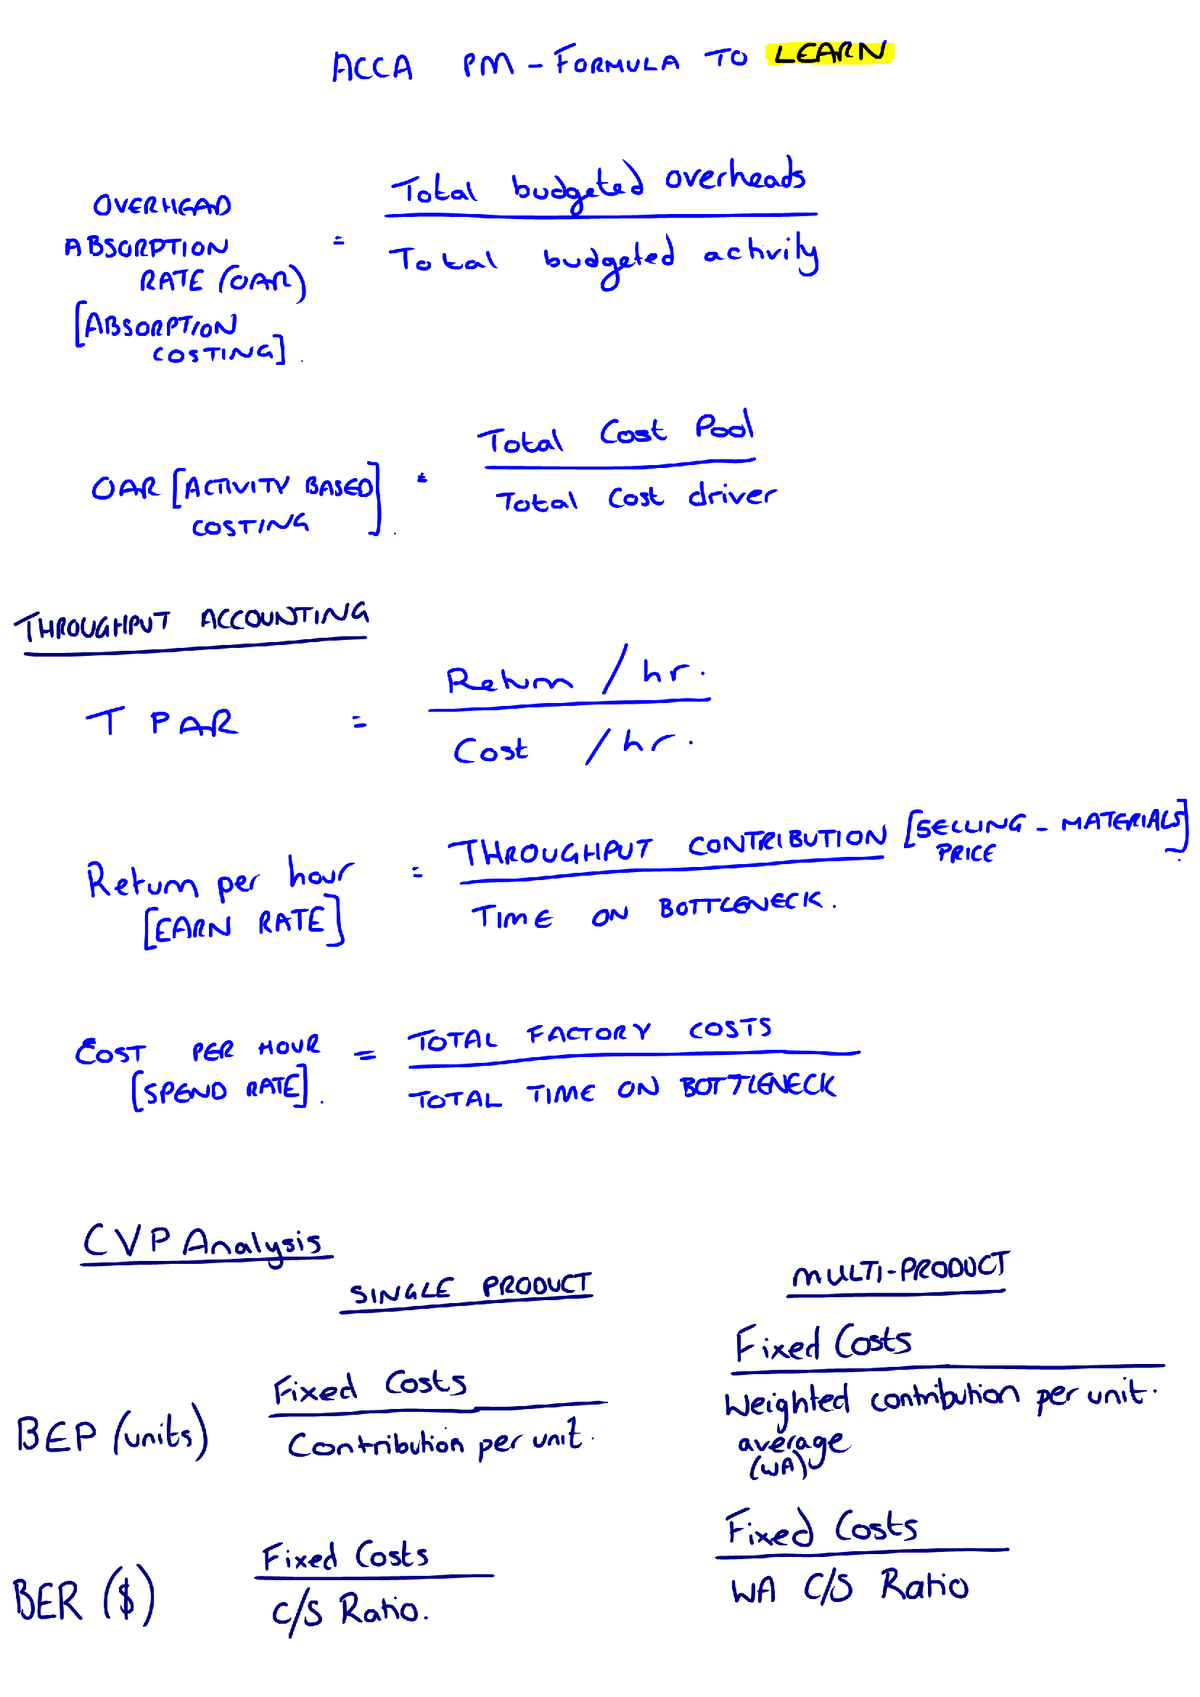 ACCA PM - FORMULA TO LEARN
OVERHEAD
ABSORPTION
RATE (OAR)
[ABSORPTION
COSTING].
=
Total budgeted overheads
Total budgeted activity
OAR [ACTIVITY BASED
COSTING].
=
Total Cost Pool
Total Cost driver
THROUGHPUT ACCOUNTING
TPAR =
Return / hr.
Cost / hr.
Return per hour
[EARN RATE]
=
THROUGHPUT CONTRIBUTION [SELLING - MATERIALS].
PRICE
TIME ON BOTTLENECK.
COST PER HOUR
[SPEND RATE].
=
TOTAL FACTORY COSTS
TOTAL TIME ON BOTTLENECK
CVP Analysis
SINGLE PRODUCT
MULTI-PRODUCT
BEP (units)
Fixed Costs
Contribution per unit.
Fixed Costs
Weighted contribution per unit.
average
(WA)
BER ($)
Fixed Costs
C/S Ratio.
Fixed Costs
WA C/S Ratio